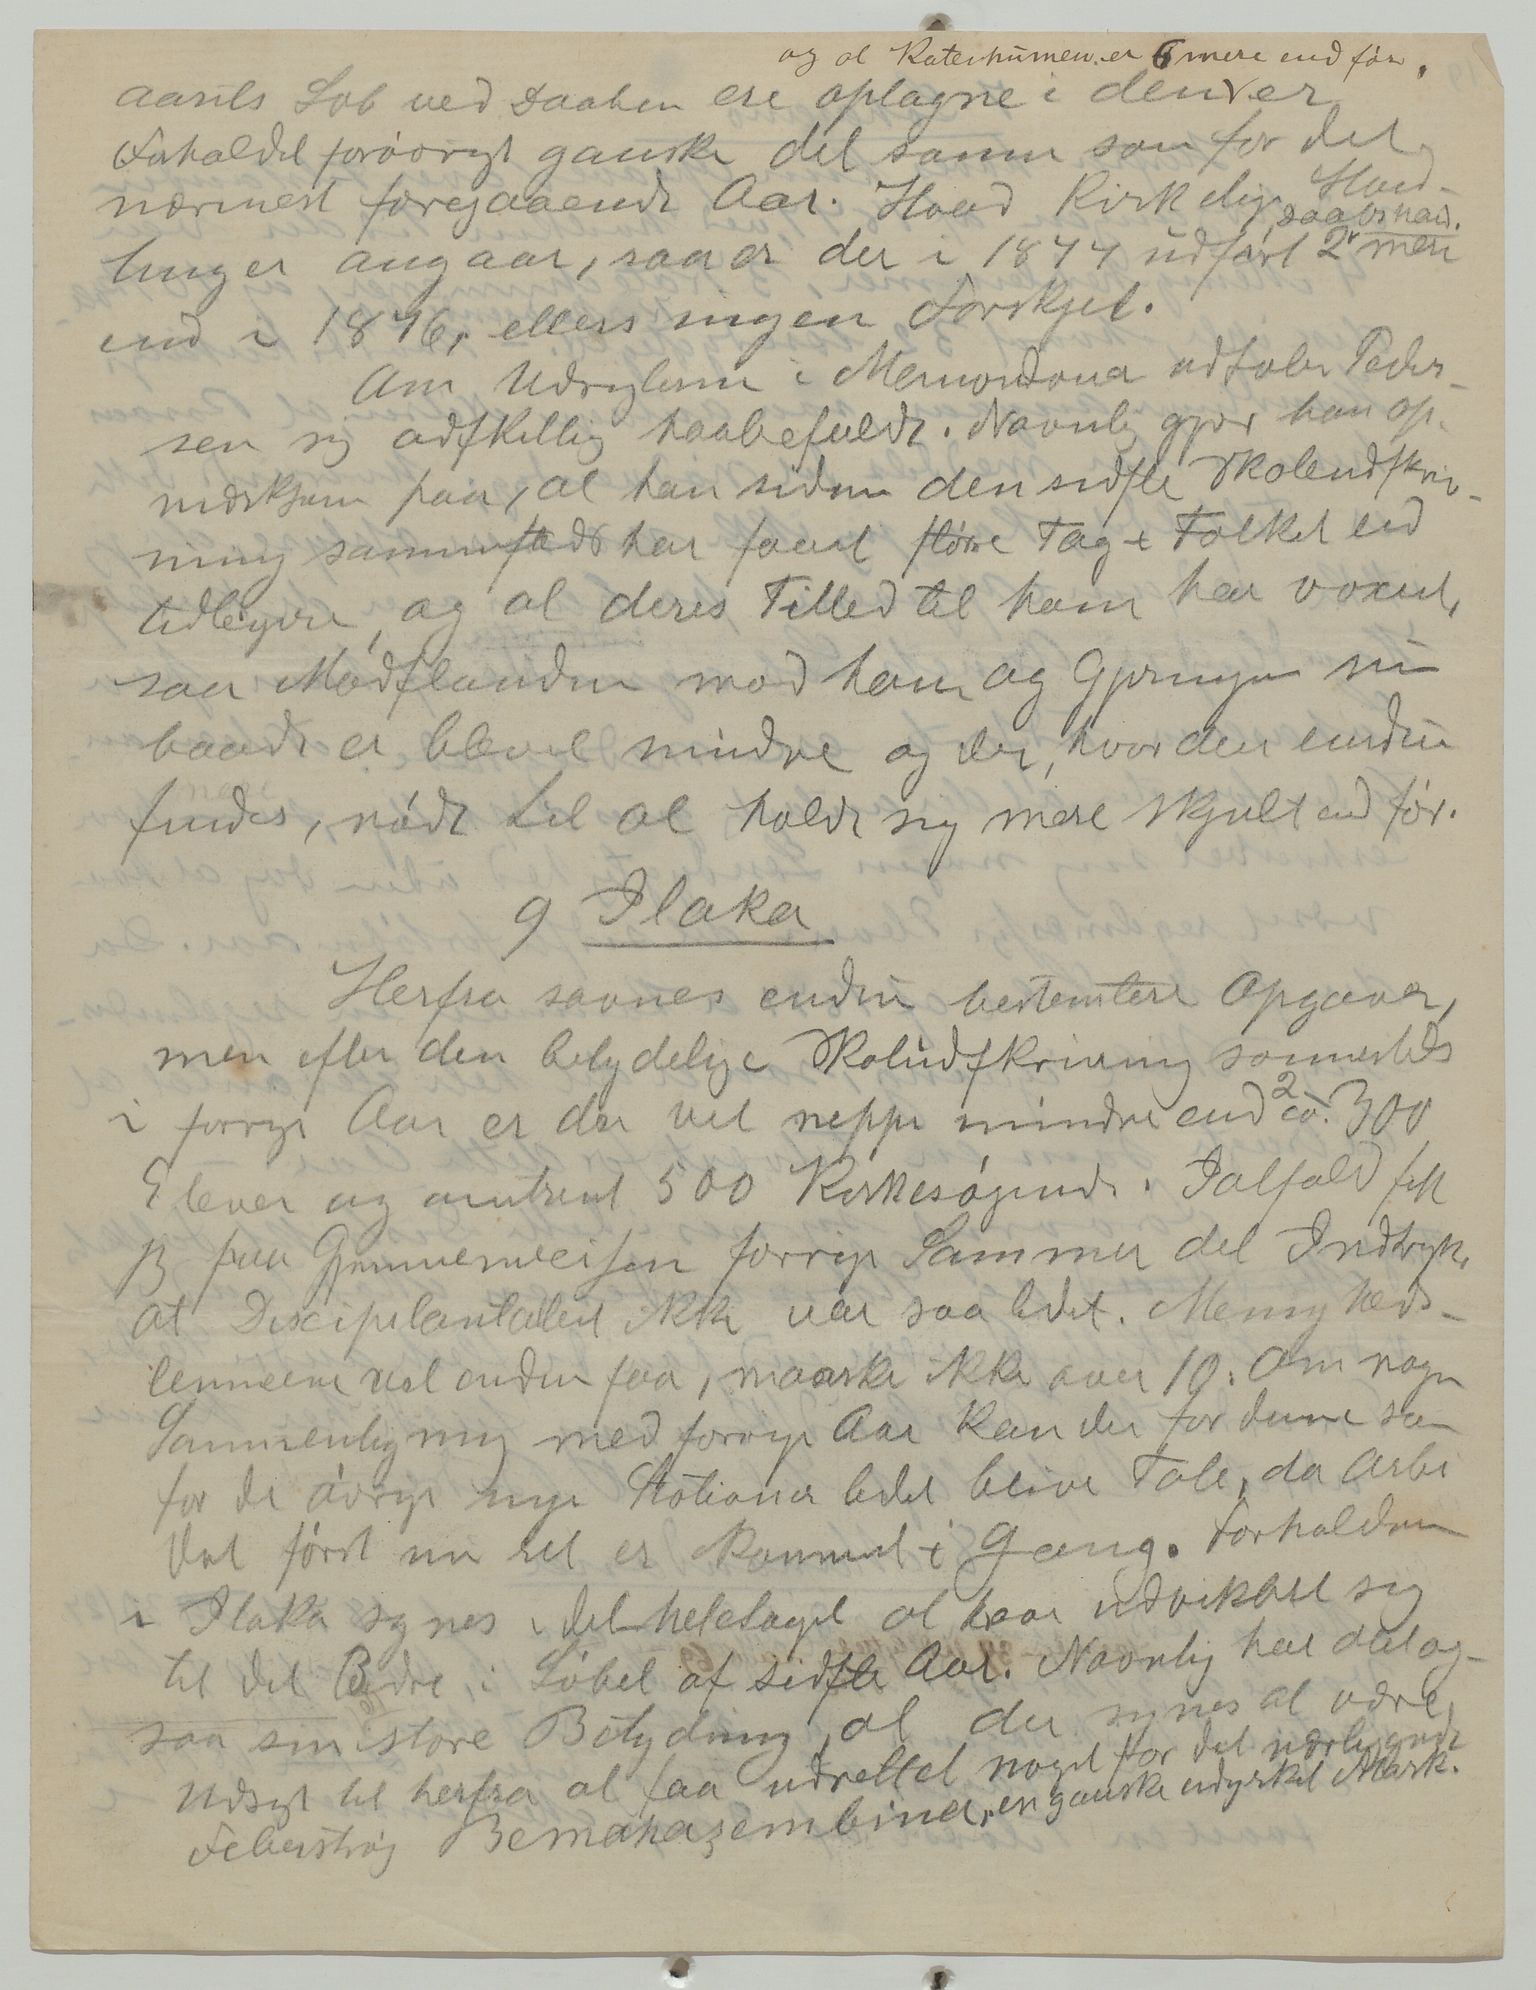 og at Katechumen. er 6 mere end før.
aarets Løb ved Daaben ere optagne i den, er
Forholdet forøvrigt ganske det samme som for det
nærmest foregaaende Aar. Hvad Kirkelige Hand-
linger angaar, saa er der i 1877 udført 2 Daabshand. mere
end i 1876, ellers ingen Forskjel.
Om Udsigterne i Manandona udtaler Peder-
sen sig adskillig haabefuldt. Navnlig gjør han op-
mærksom paa, at han siden den sidste Skoleudskriv-
ning sammesteds har faaet større Tag i Folket end
tidligere, og at deres Tillid til ham har voxet,
saa Modstanden mod ham og Gjerningen nu
baade er blevet mindre og der, hvor den endnu
findes, nødt til at holde sig mere skjult end før.
9 Ilaka
Herfra savnes endnu bestemtere Opgaver,
men efter den betydelige Skoleudskrivning sammesteds
i forrige Aar er der vel neppe mindre end 2 à 300
Elever og omtrent 500 Kirkesøgende. Ialfald fik
jeg paa Gjennemreisen forrige Sommer det Indtryk,
at Discipelantallet ikke var saa lidet. Menigheds-
lemmerne vel endnu faa, maaske ikke over 10. Om nogen
Sammenligning med forrige Aar kan der for denne som
for de øvrige nye Stationer lidet blive Tale, da Arbei
det først nu ret er kommet i Gang. Forholdene
i Ilaka synes i det hele taget at have udviklet sig
til det Bedre i Løbet af sidste Aar. Navnlig har det og-
saa sin store Betydning, at der synes at være
Udsigt til herfra at faa udrettet noget for det nærliggende
Feberstrøg Bemahazembina, en ganske udyrket Mark.